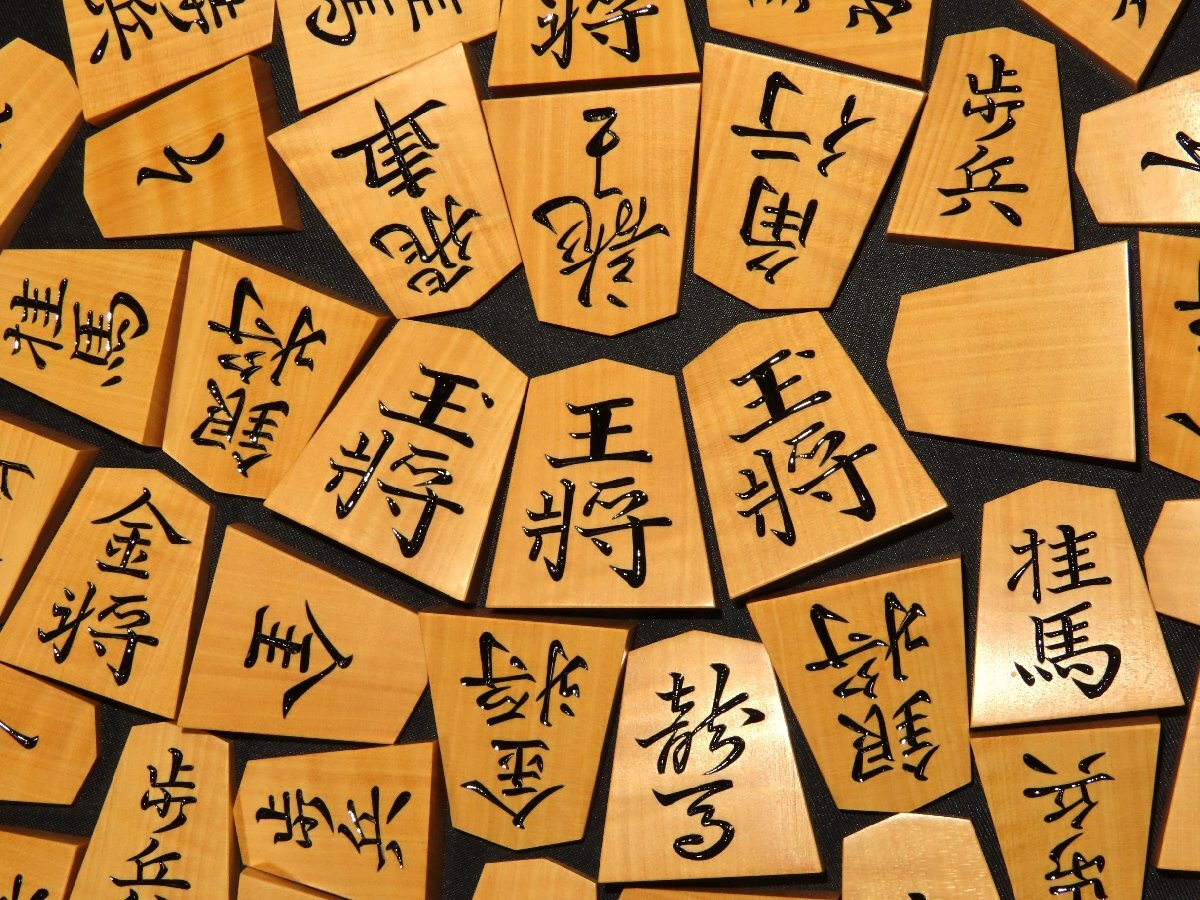 飛車
龍王
角行
歩兵
桂馬
銀将
王将
王将
王将
金将
金
金将
龍馬
銀将
桂馬
歩兵
歩兵
歩兵